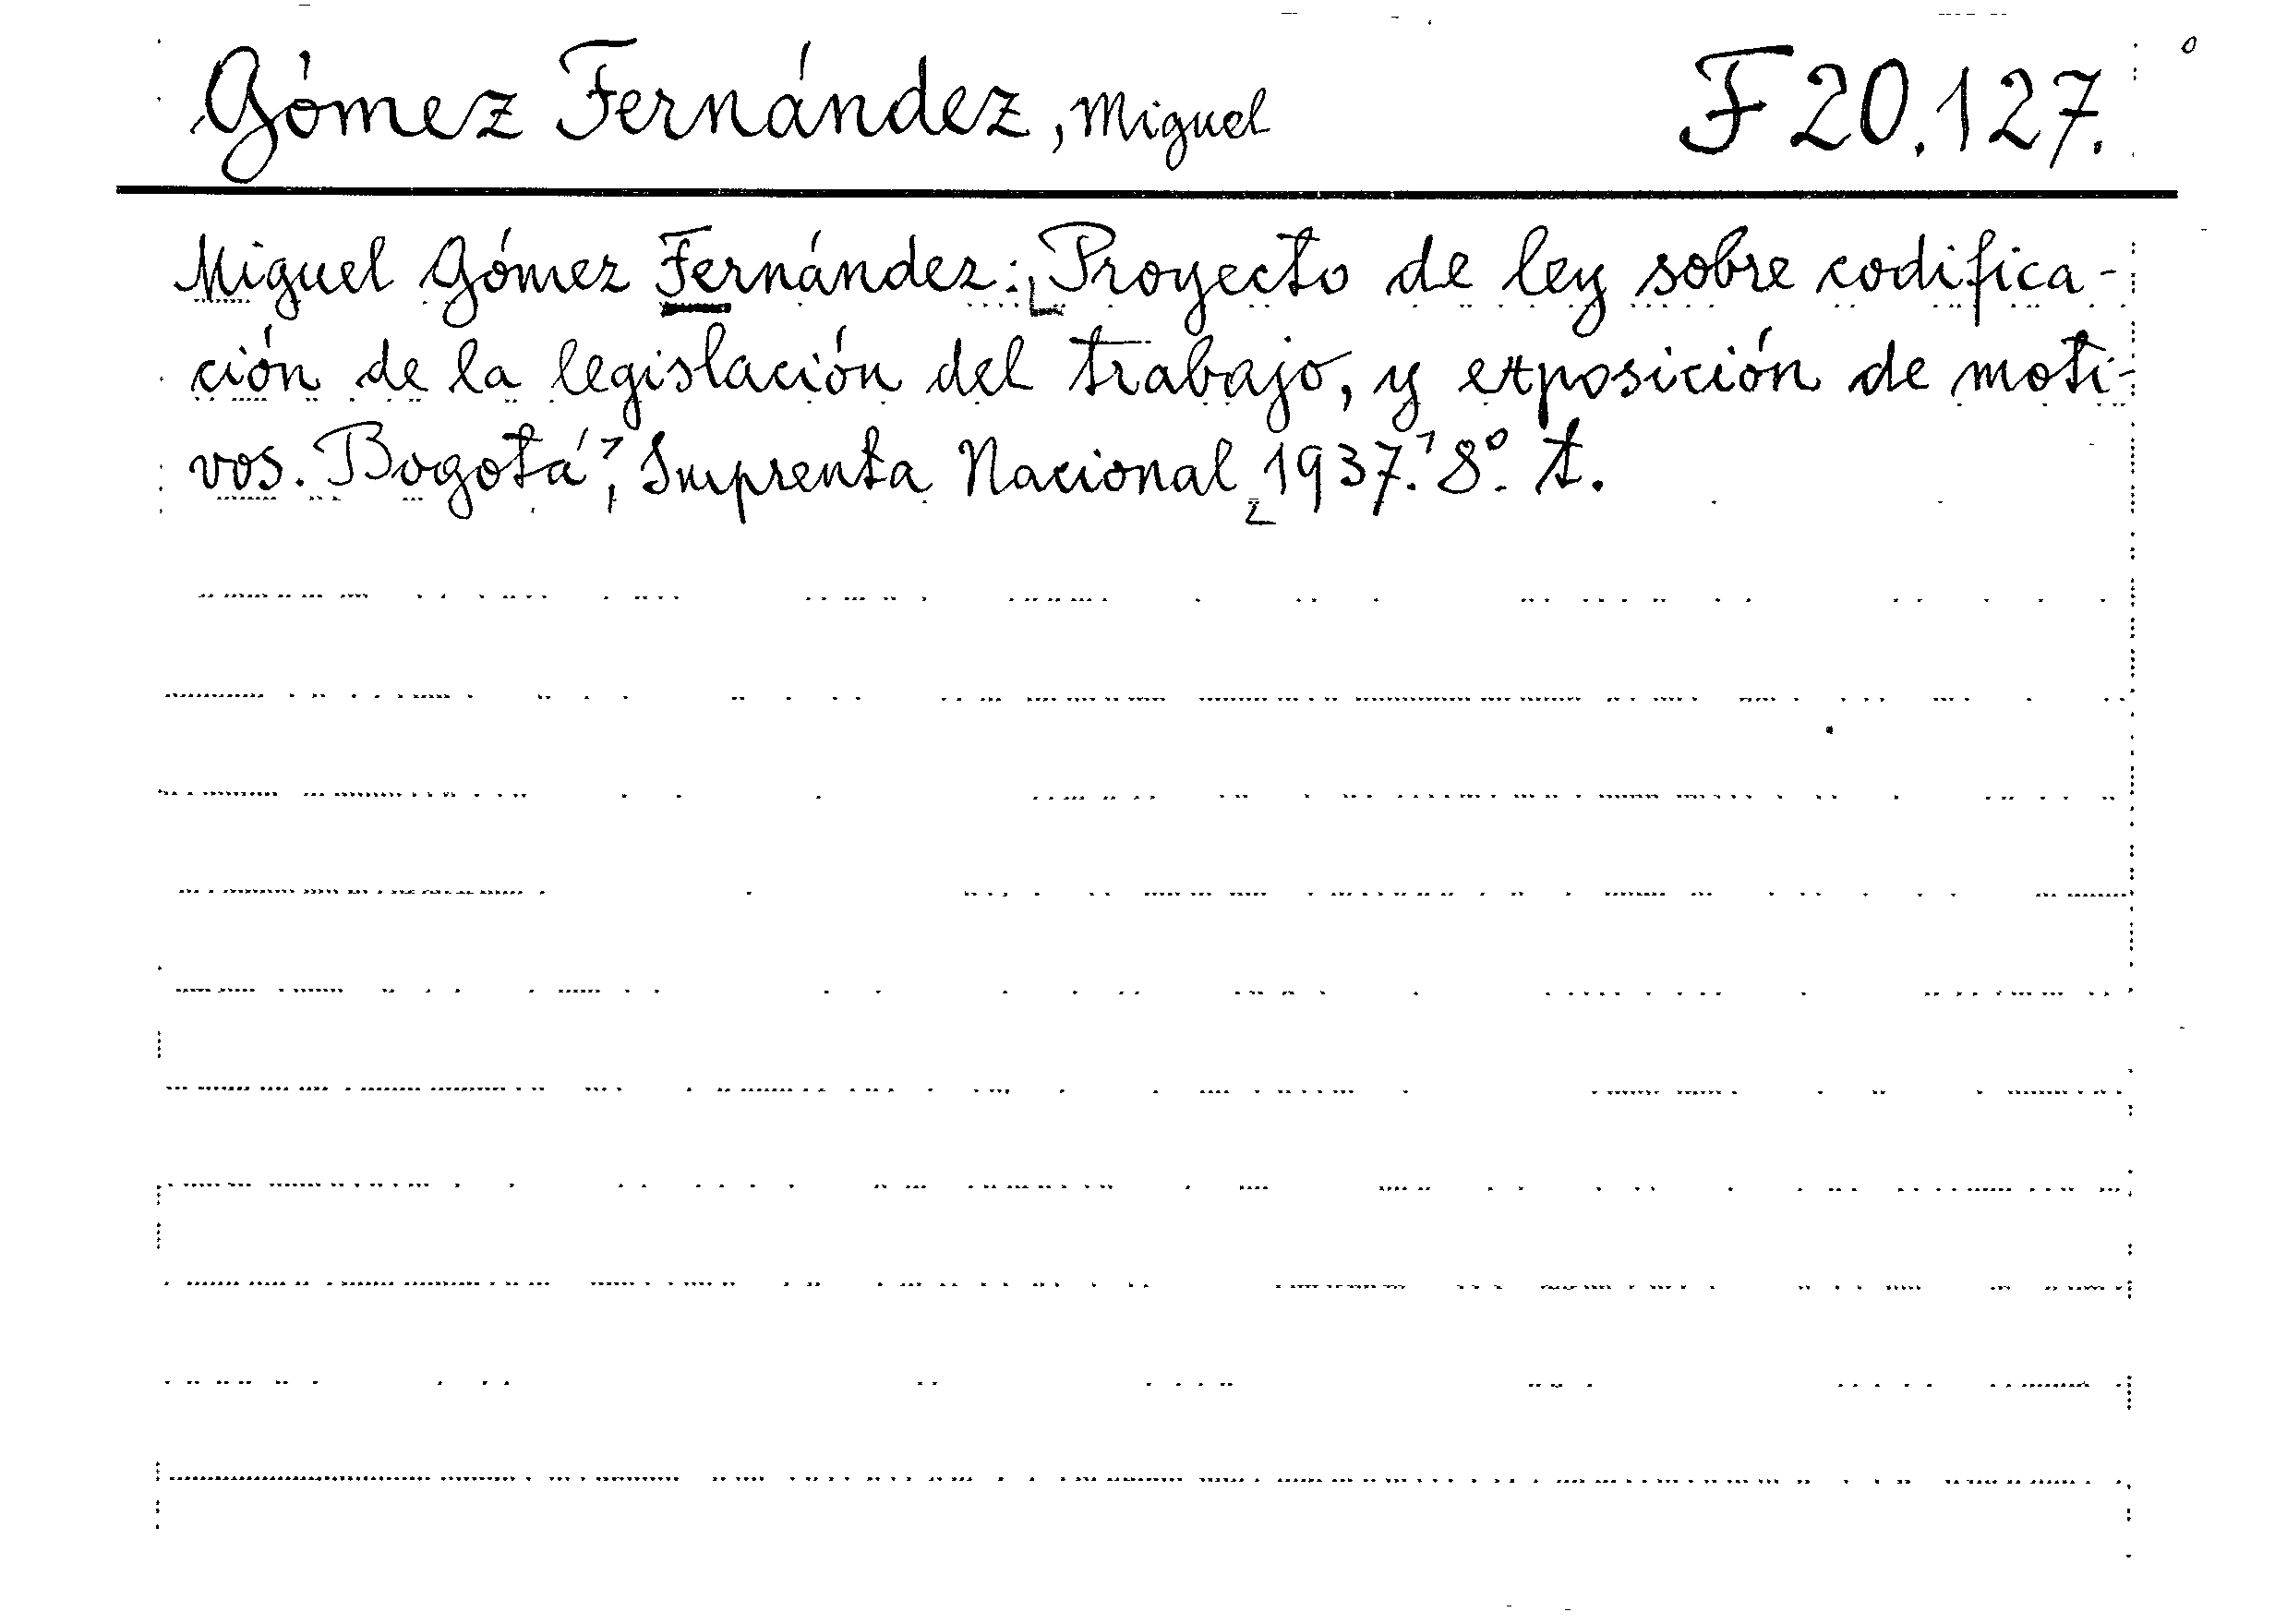 Gómez Fernández, Miguel F 20.127.
Miguel Gómez Fernández: Proyecto de ley sobre codifica-
ción de la legislación del trabajo, y exposición de moti-
vos. Bogotá, Imprenta Nacional 1937. 8º. t.